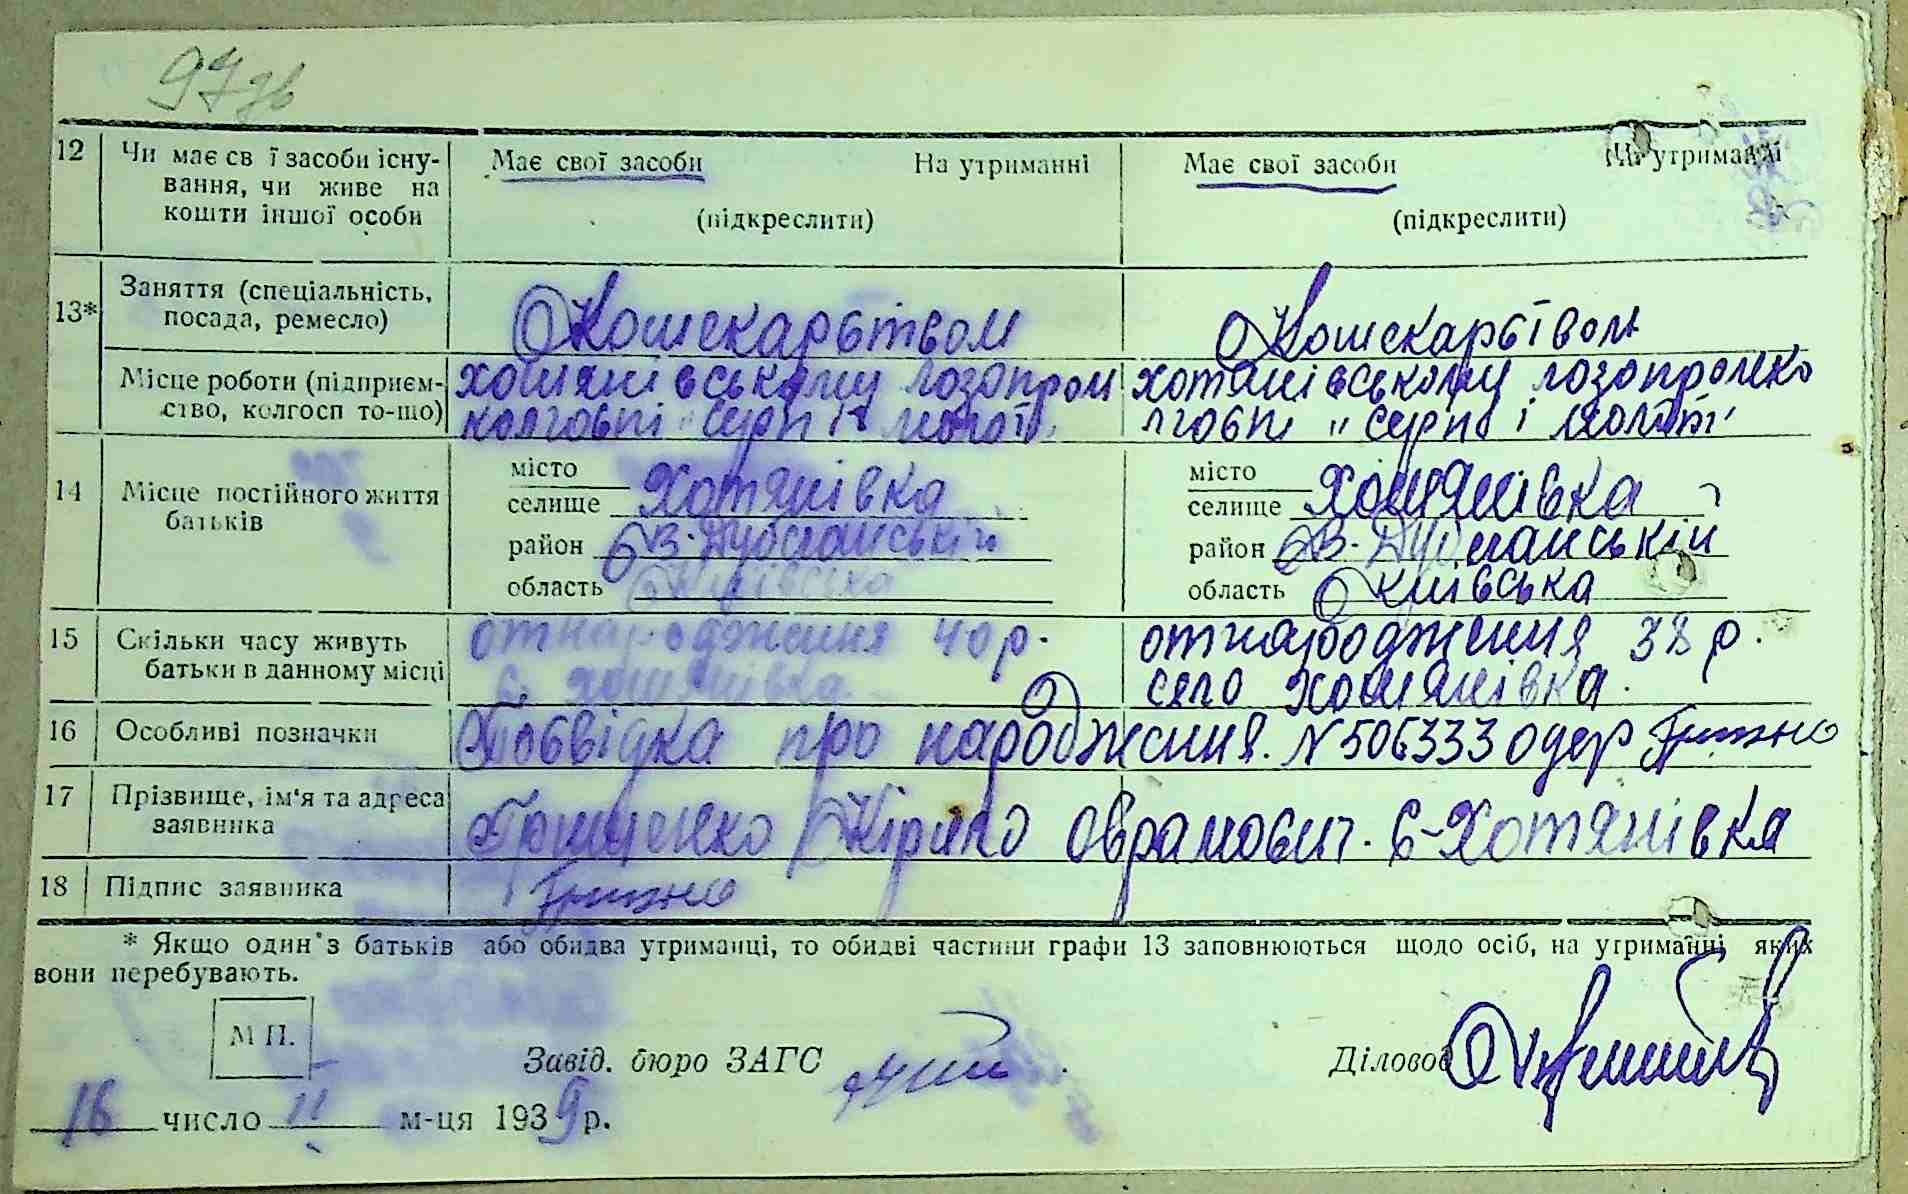 97зв
12 Чи має св ї засоби існу- Має свої засоби На утриманні Має свої засоби На утриманні
вання, чи живе на
кошти іншої особи (підкреслити) (підкреслити)
13* Заняття (спеціальність,
посада, ремесло) Кошекарством Кошекарством
Місце роботи (підприєм- хотянівському лозопром хотянівському лозопромко
ство, колгосп то-що) колговпі "серп і молот" лговпі "серп і молот"
14 Місце постійного життя
батьків
місто місто
селище Хотянівка селище Хотянівка
район В-Дубечанський район В-Дубечанській
область Київська область Київська
15 Скільки часу живуть отнародження 40 р. отнародження 38 р.
батьки в данному місці с. хотянівка село хотянівка.
16 Особливі позначки Посвідка про народження. N 506333 одер
17 Прізвище, ім'я та адреса
заявника Грищенко Кірило Оврамович. с-Хотянівка
18 Підпис заявника
* Якщо один з батьків або обидва утриманці, то обидві частини графи 13 заповнюються щодо осіб, на утриманні яких
вони перебувають.
М П.
Завід. бюро ЗАГС Діловод
16 число II м-ця 1939 р.